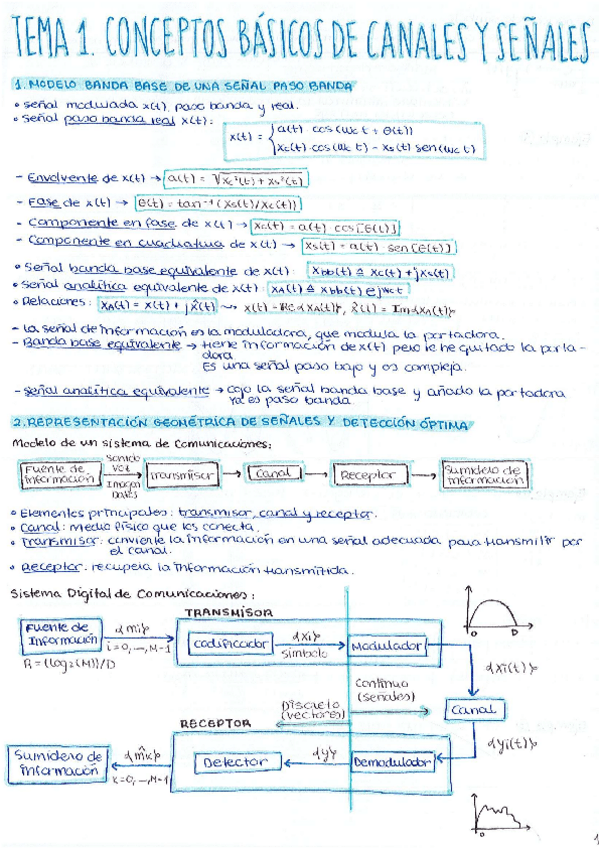 TEMA 1. CONCEPTOS BÁSICOS DE CANALES Y SEÑALES
1. MODELO BANDA BASE DE UNA SEÑAL PASO BANDA
• señal modulada x(t), paso banda y real.
• señal paso banda real x(t):
x(t) = { a(t) · cos(ωc t + θ(t))
xc(t)·cos(ωc t) - xs(t) sen(ωc t)
- Envolvente de x(t) → a(t) = √(xc²(t) + xs²(t))
- Fase de x(t) → θ(t) = tan⁻¹(xs(t)/xc(t))
- Componente en fase de x(t) → xc(t) = a(t) · cos[θ(t)]
- Componente en cuadratura de x(t) → xs(t) = a(t) · sen[θ(t)]
• Señal banda base equivalente de x(t): xbb(t) ≜ xc(t) + jxs(t)
• Señal analítica equivalente de x(t): xA(t) ≜ xbb(t) e^jωct
• Relaciones: xA(t) = x(t) + j x̂(t) ⟿ x(t) = Re{xA(t)}, x̂(t) = Im{xA(t)}
- La señal de información es la moduladora, que modula la portadora.
- Banda base equivalente → tiene información de x(t) pero le he quitado la porta-
dora
Es una señal paso bajo y es compleja.
- señal analítica equivalente → cojo la señal banda base y añado la portadora
ya es paso banda
2. REPRESENTACIÓN GEOMÉTRICA DE SEÑALES Y DETECCIÓN ÓPTIMA
Modelo de un sistema de comunicaciones:
Fuente de información
Sonido
Voz
Imagen
Datos
Transmisor
Canal
Receptor
Sumidero de información
• Elementos principales: transmisor, canal y receptor.
• Canal: medio físico que los conecta.
• Transmisor: convierte la información en una señal adecuada para transmitir por
el canal.
• Receptor: recupera la información transmitida.
Sistema Digital de Comunicaciones:
TRANSMISOR
Fuente de Información
{mi}
i=0,...,M-1
R = (log₂(M))/D
Codificador
{xi}
símbolo
Modulador
{xi(t)}
0 D
Continuo
(señales)
Discreto
(vectores)
Canal
{yi(t)}
RECEPTOR
Sumidero de información
{m̂k}
k=0,...,M-1
Detector
{y}
Demodulador
0 D
1